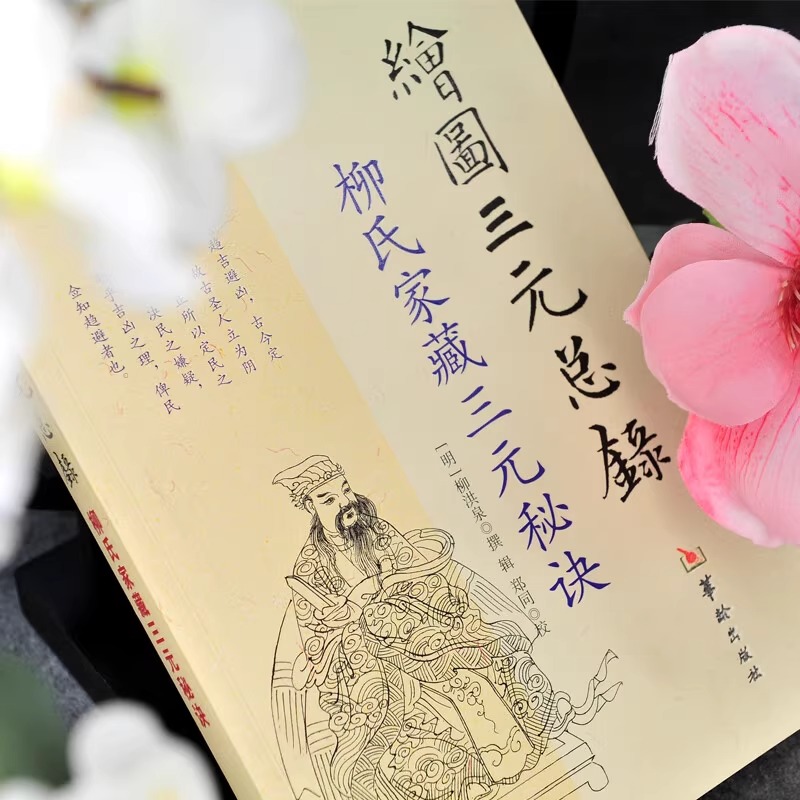 繪圖三元总錄
柳氏家藏三元秘诀
[明]柳洪泉◎撰辑 郑同◎校
華龄出版社
趋吉避凶，古今定
故古圣人立为阴
所以定民之
决民之嫌疑；
吉凶之理，俾民
佥知趋避者也。
錄 柳氏家藏三元秘诀